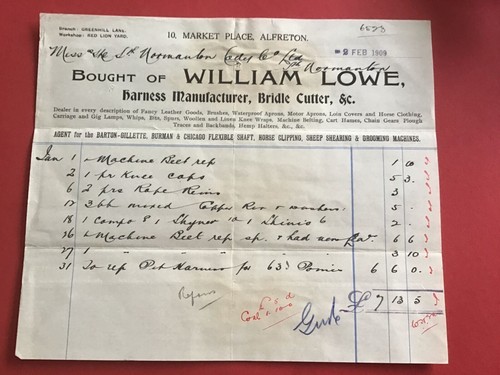 Branch: GREENHILL LANE.
Workshop: RED LION YARD.
10, MARKET PLACE, ALFRETON.
6593
2 FEB 1909
Normanton Co Ltd
Normanton
BOUGHT OF WILLIAM LOWE,
Harness Manufacturer, Bridle Cutter, &c.
Dealer in every description of Fancy Leather Goods, Brushes, Waterproof Aprons, Motor Aprons, Loin Covers and Horse Clothing,
Carriage and Gig Lamps, Whips, Bits, Spurs, Woollen and Linen Knee Wraps, Machine Belting, Cart Hames, Chain Gears Plough
Traces and Backbands, Hemp Halters, &c., &c.
AGENT for the BARTON-GILLETTE, BURMAN & CHICAGO FLEXIBLE SHAFT, HORSE CLIPPING, SHEEP SHEARING & GROOMING MACHINES.
Jan 1 Machine Belt rep 1 10
2 1 pr Knee caps 5 3
6 2 prs Rope Reins 3
12 mixed Copper & washers 5
18 1 Compo 1 2
26 Machine Belt rep & new 6 6
27 1 " " 3 10
31 To rep Pit Harness for 63 Ponies 6 6 0
£ 7 13 5
£ s d